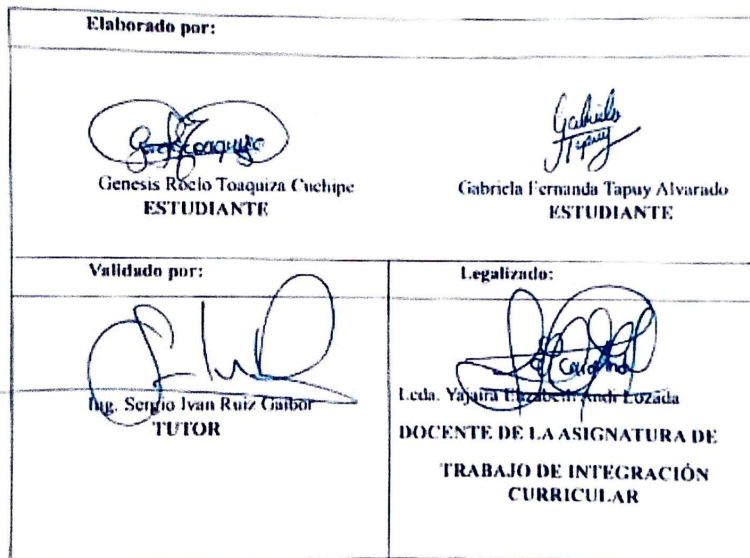 Elaborado por:
Gabriela
Tapuy
Genesis Rocío Toaquiza Cuchipe
ESTUDIANTE
Gabriela Fernanda Tapuy Alvarado
ESTUDIANTE
Validado por:
Legalizado:
Ing. Sergio Ivan Ruiz Gaibor
TUTOR
Lcda. Yajaira Elizabeth Andi Lozada
DOCENTE DE LA ASIGNATURA DE
TRABAJO DE INTEGRACIÓN
CURRICULAR